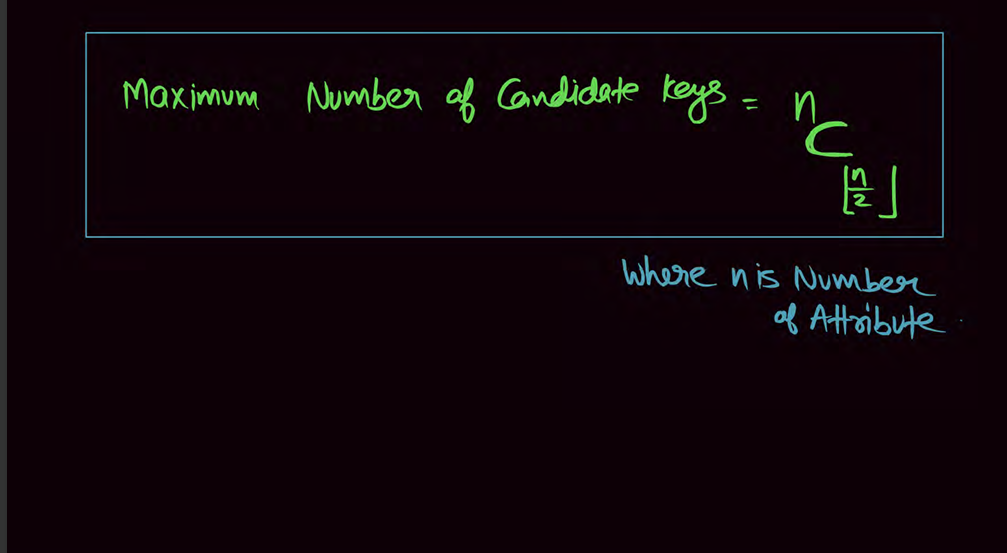 Maximum Number of Candidate keys = ⁿC⌊n/2⌋
Where n is Number
of Attribute